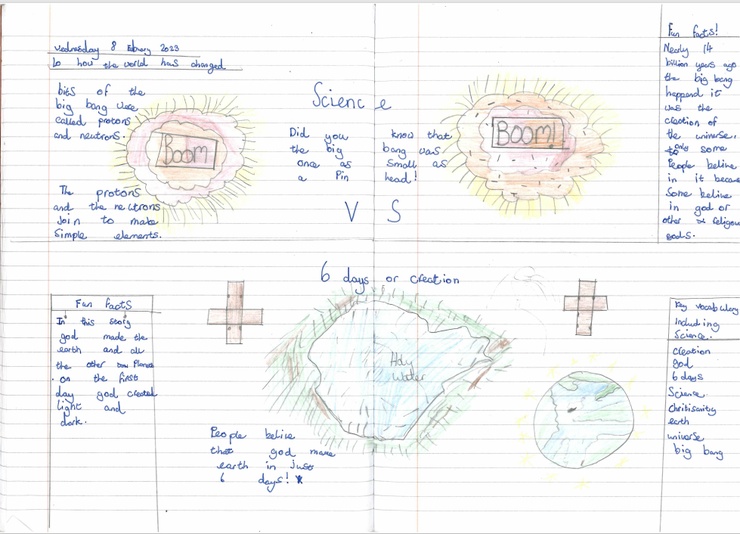 Wednesday 8 Febuary 2023
Lo how the world has changed
bits of the
big bang were
called protons
and neutrons.
BOOM
The protons
and the neutrons
Join to make
Simple elements.
Science
Did you know that
the big bang was
once as small as
a Pin head!
VS
BOOM!
Fun facts!
Nearly 14
billion years ago
the big bang
happend it
was the
creation of
the universe.
only some
People belive
in it becaus
Some belive
in god or
other religious
gods.
6 days of creation
Fun facts
In this story
god made the
earth and all
the other Planes
on the first
day god created
light and
dark.
Holy
Water
People belive
that god make
earth in just
6 days!
Key vocabulary
including
Science.
creation
god
6 days
Science
Chritisanity
earth
universe
big bang